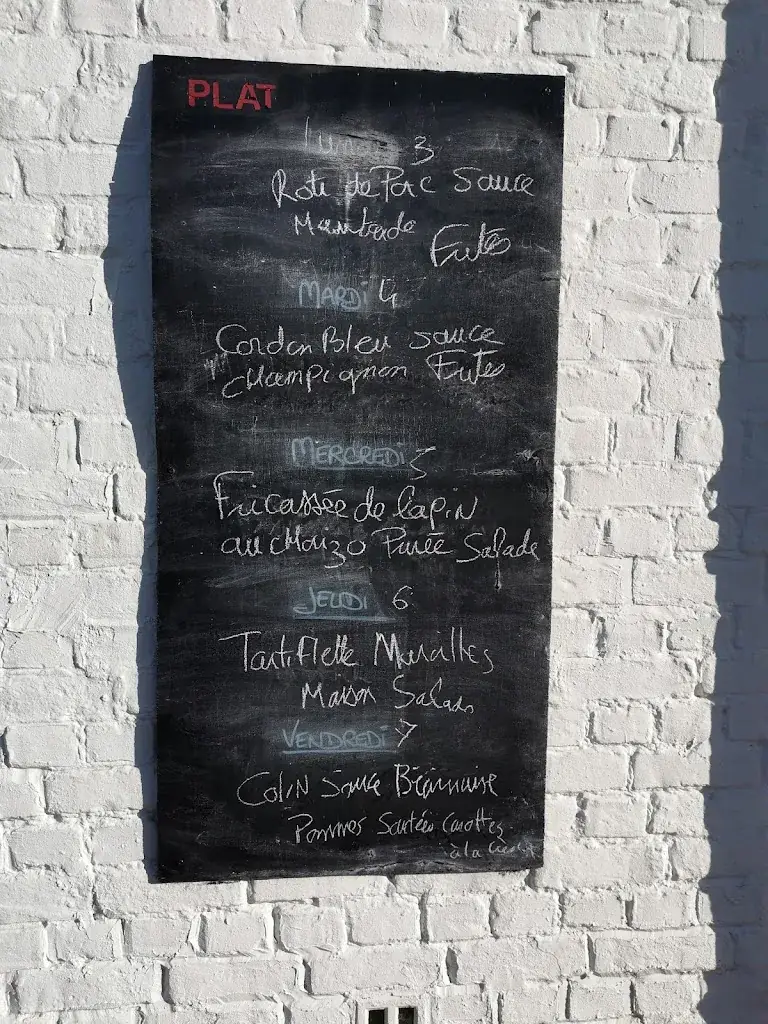 PLAT
Lundi 3
Roti de Porc Sauce
Moutarde Frites
MARDI 4
Cordon Bleu sauce
champignon Frites
MERCREDI 5
Fricassée de lapin
au chorizo Purée Salade
JEUDI 6
Tartiflette
Maison Salade
VENDREDI 7
Colin Sauce Béarnaise
Pommes Sautées Carottes
à la